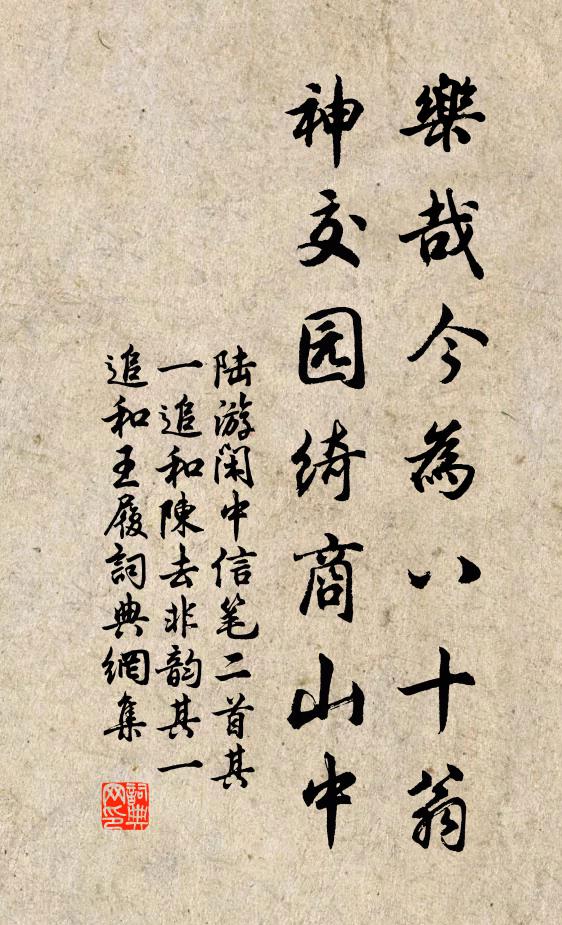 樂哉今為八十翁
神交园綺商山中
陆游闲中信笔二首其
一追和陳去非韵其一
追和王履詞典網集
詞典网印